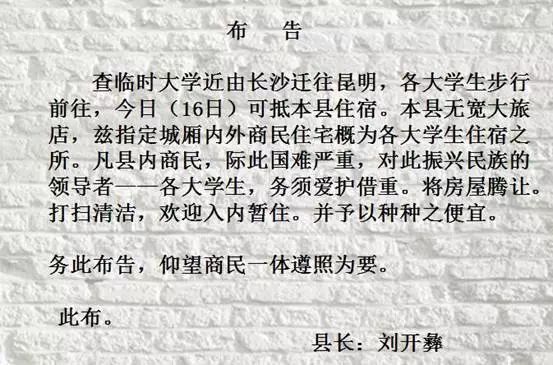 布 告
查临时大学近由长沙迁往昆明，各大学生步行
前往，今日（16日）可抵本县住宿。本县无宽大旅
店，兹指定城厢内外商民住宅概为各大学生住宿之
所。凡县内商民，际此国难严重，对此振兴民族的
领导者——各大学生，务须爱护借重。将房屋腾让。
打扫清洁，欢迎入内暂住。并予以种种之便宜。
务此布告，仰望商民一体遵照为要。
此布。
县长：刘开彝